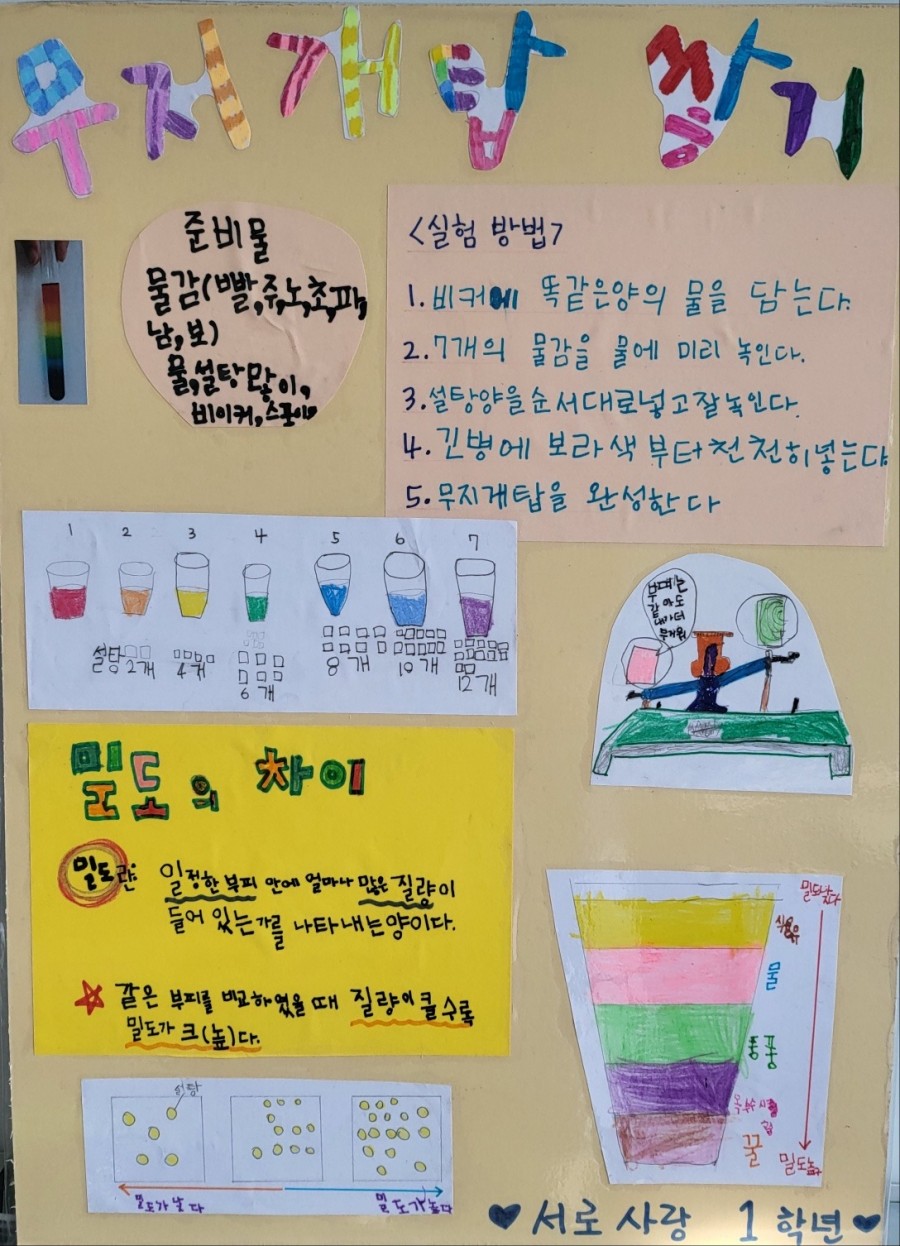 무지개탑 쌓기
준비물
물감(빨,주,노,초,파,
남,보)
물,설탕많이,
비이커,스포이드
<실험 방법>
1.비커에 똑같은양의 물을 담는다.
2.7개의 물감을 물에 미리 녹인다.
3.설탕양을순서대로넣고잘녹인다.
4.긴병에 보라색 부터천천히넣는다
5.무지개탑을 완성한다
1 2 3 4 5 6 7
설탕 2개 4개 6개 8개 10개 12개
부피는
같아도
내가더
무거워
밀도의 차이
밀도란 일정한 부피 안에 얼마나 많은 질량이
들어 있는가를 나타내는양이다.
같은 부피를 비교하였을 때 질량이 클수록
밀도가 크(높)다.
설탕
밀도가 낮다 밀도가높다
밀도낮다
식용유
물
퐁퐁
옥수수시럽
꿀
밀도높다
♥서로 사랑 1학년♥